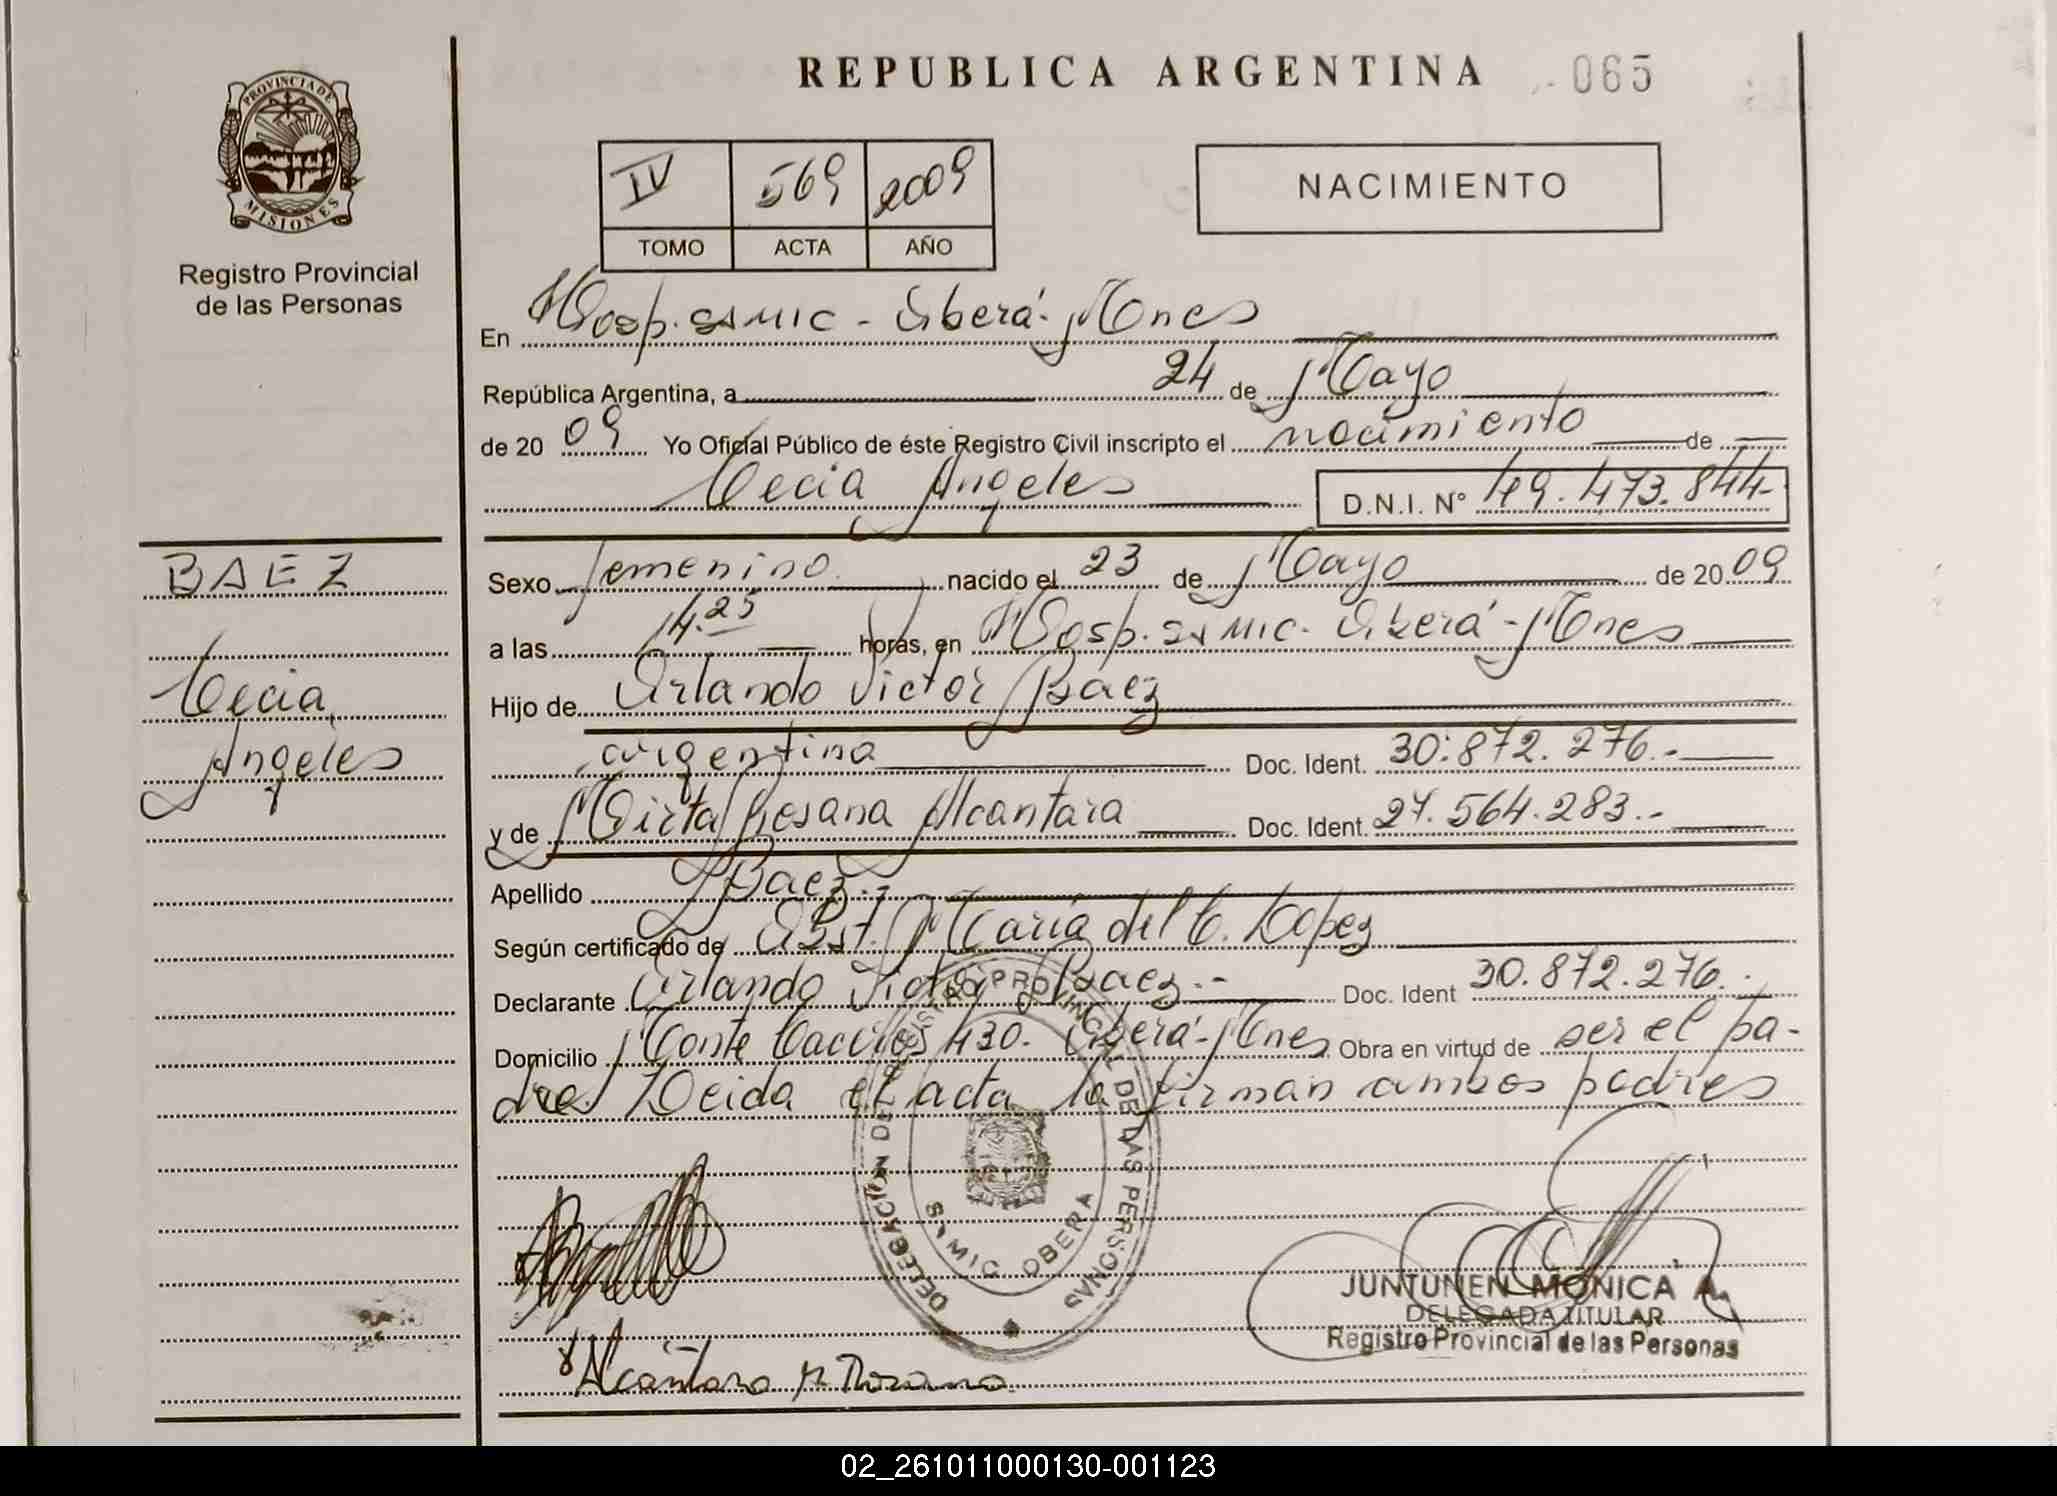 REPUBLICA ARGENTINA 065
PROVINCIA DE
MISIONES
Registro Provincial
de las Personas
IV 569 2009
TOMO ACTA AÑO
NACIMIENTO
En Hosp. SAMIC - Oberá - Mnes
República Argentina, a 24 de Mayo
de 2009 Yo Oficial Público de éste Registro Civil inscripto el nacimiento de
Cecia Angeles D.N.I. Nº 49.473.844-
BAEZ
Cecia
Angeles
Sexo femenino nacido el 23 de Mayo de 2009
a las 14.25 horas, en Hosp. SAMIC - Oberá - Mnes
Hijo de Orlando Victor Baez
argentina Doc. Ident. 30.872.276.-
y de Mirta Rosana Alcantara Doc. Ident. 27.564.283.-
Apellido Baez.-
Según certificado de Obst. María del C. Lopez
Declarante Orlando Victor Baez.- Doc. Ident 30.872.276.-
Domicilio Monte 430. Oberá - Mnes Obra en virtud de ser el pa-
dre. Leida el acta la firman ambos padres
DELEGACION DEL REGISTRO PROVINCIAL DE LAS PERSONAS
SAMIC OBERA
Alcántara M. Rosana
JUNTUNEN MÓNICA A.
DELEGADA TITULAR
Registro Provincial de las Personas
02_261011000130-001123